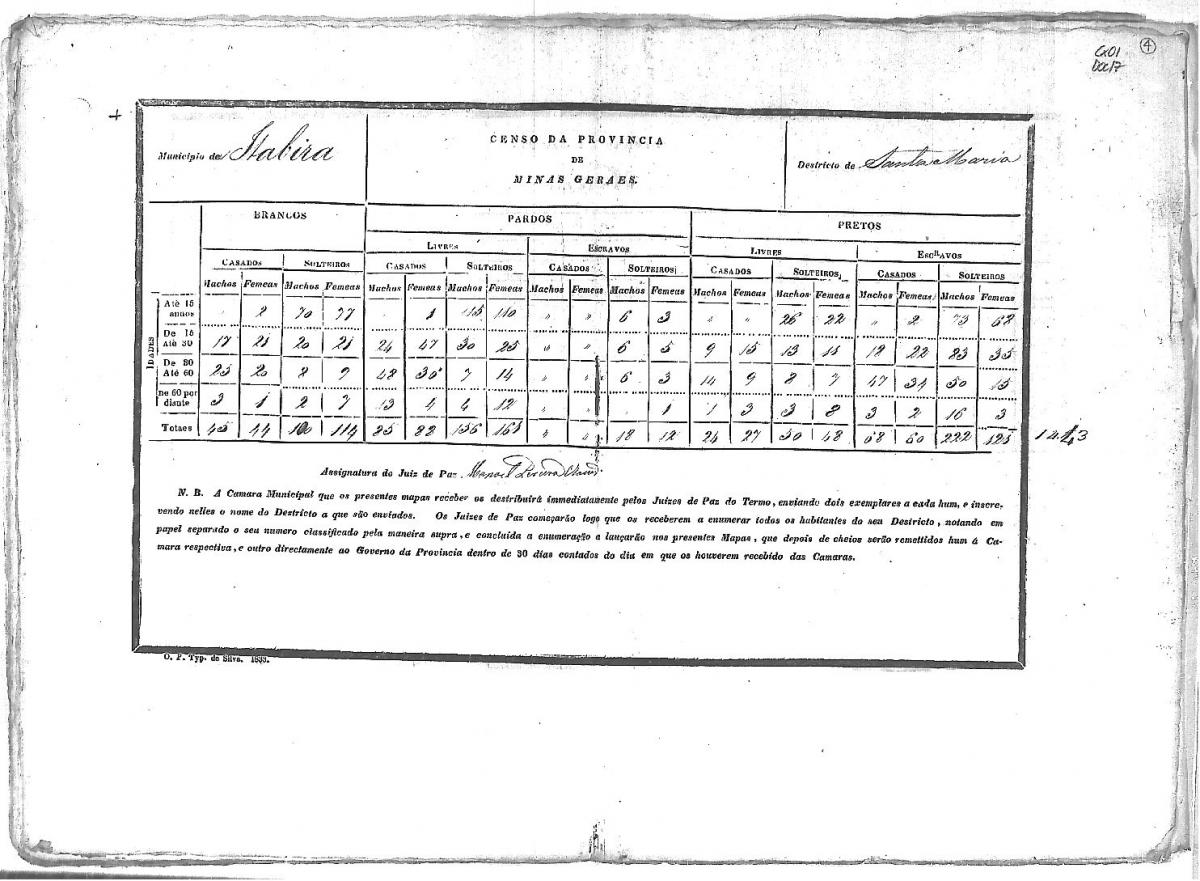 CX01 4
Doc 17
Municipio de Itabira
CENSO DA PROVINCIA
DE
MINAS GERAES.
Destricto de Santa Maria
BRANCOS PARDOS PRETOS
LIVRES ESCRAVOS LIVRES ESCRAVOS
CASADOS SOLTEIROS CASADOS SOLTEIROS CASADOS SOLTEIROS CASADOS SOLTEIROS CASADOS SOLTEIROS
Machos Femeas Machos Femeas Machos Femeas Machos Femeas Machos Femeas Machos Femeas Machos Femeas Machos Femeas Machos Femeas Machos Femeas
IDADES
Até 15 annos 2 70 77 1 115 110 " " 6 3 " " 26 22 " 2 73 62
De 15 Até 30 17 21 20 21 24 47 30 25 " " 6 5 9 15 13 11 12 22 83 35
De 30 Até 60 25 20 8 9 48 30 7 14 " " 6 3 14 9 8 7 47 34 50 15
De 60 por diante 3 1 2 7 13 4 4 12 " " 1 1 3 3 8 3 2 16 3
Totaes 45 44 100 114 85 82 156 161 " " 18 12 24 27 50 48 68 60 222 125
Assignatura do Juiz de Paz Manoel
N. B. A Camara Municipal que os presentes mapas receber os destribuirá immediatamente pelos Juizes de Paz do Termo, enviando dois exemplares a eada hum, e inscre-
vendo nelles o nome do Destricto a que são enviados. Os Juizes de Paz começarão logo que os receberem a enumerar todos os habitantes do seu Destricto, notando em
papel separado o seu numero classificado pela maneira supra, e concluida a enumeração a lançarão nos presentes Mapas, que depois de cheios serão remettidos hum á Ca-
mara respectiva, e outro directamente ao Governo da Provincia dentro de 30 dias contados do dia em que os houverem recebido das Camaras.
O. P. Typ. de Silva. 1833.